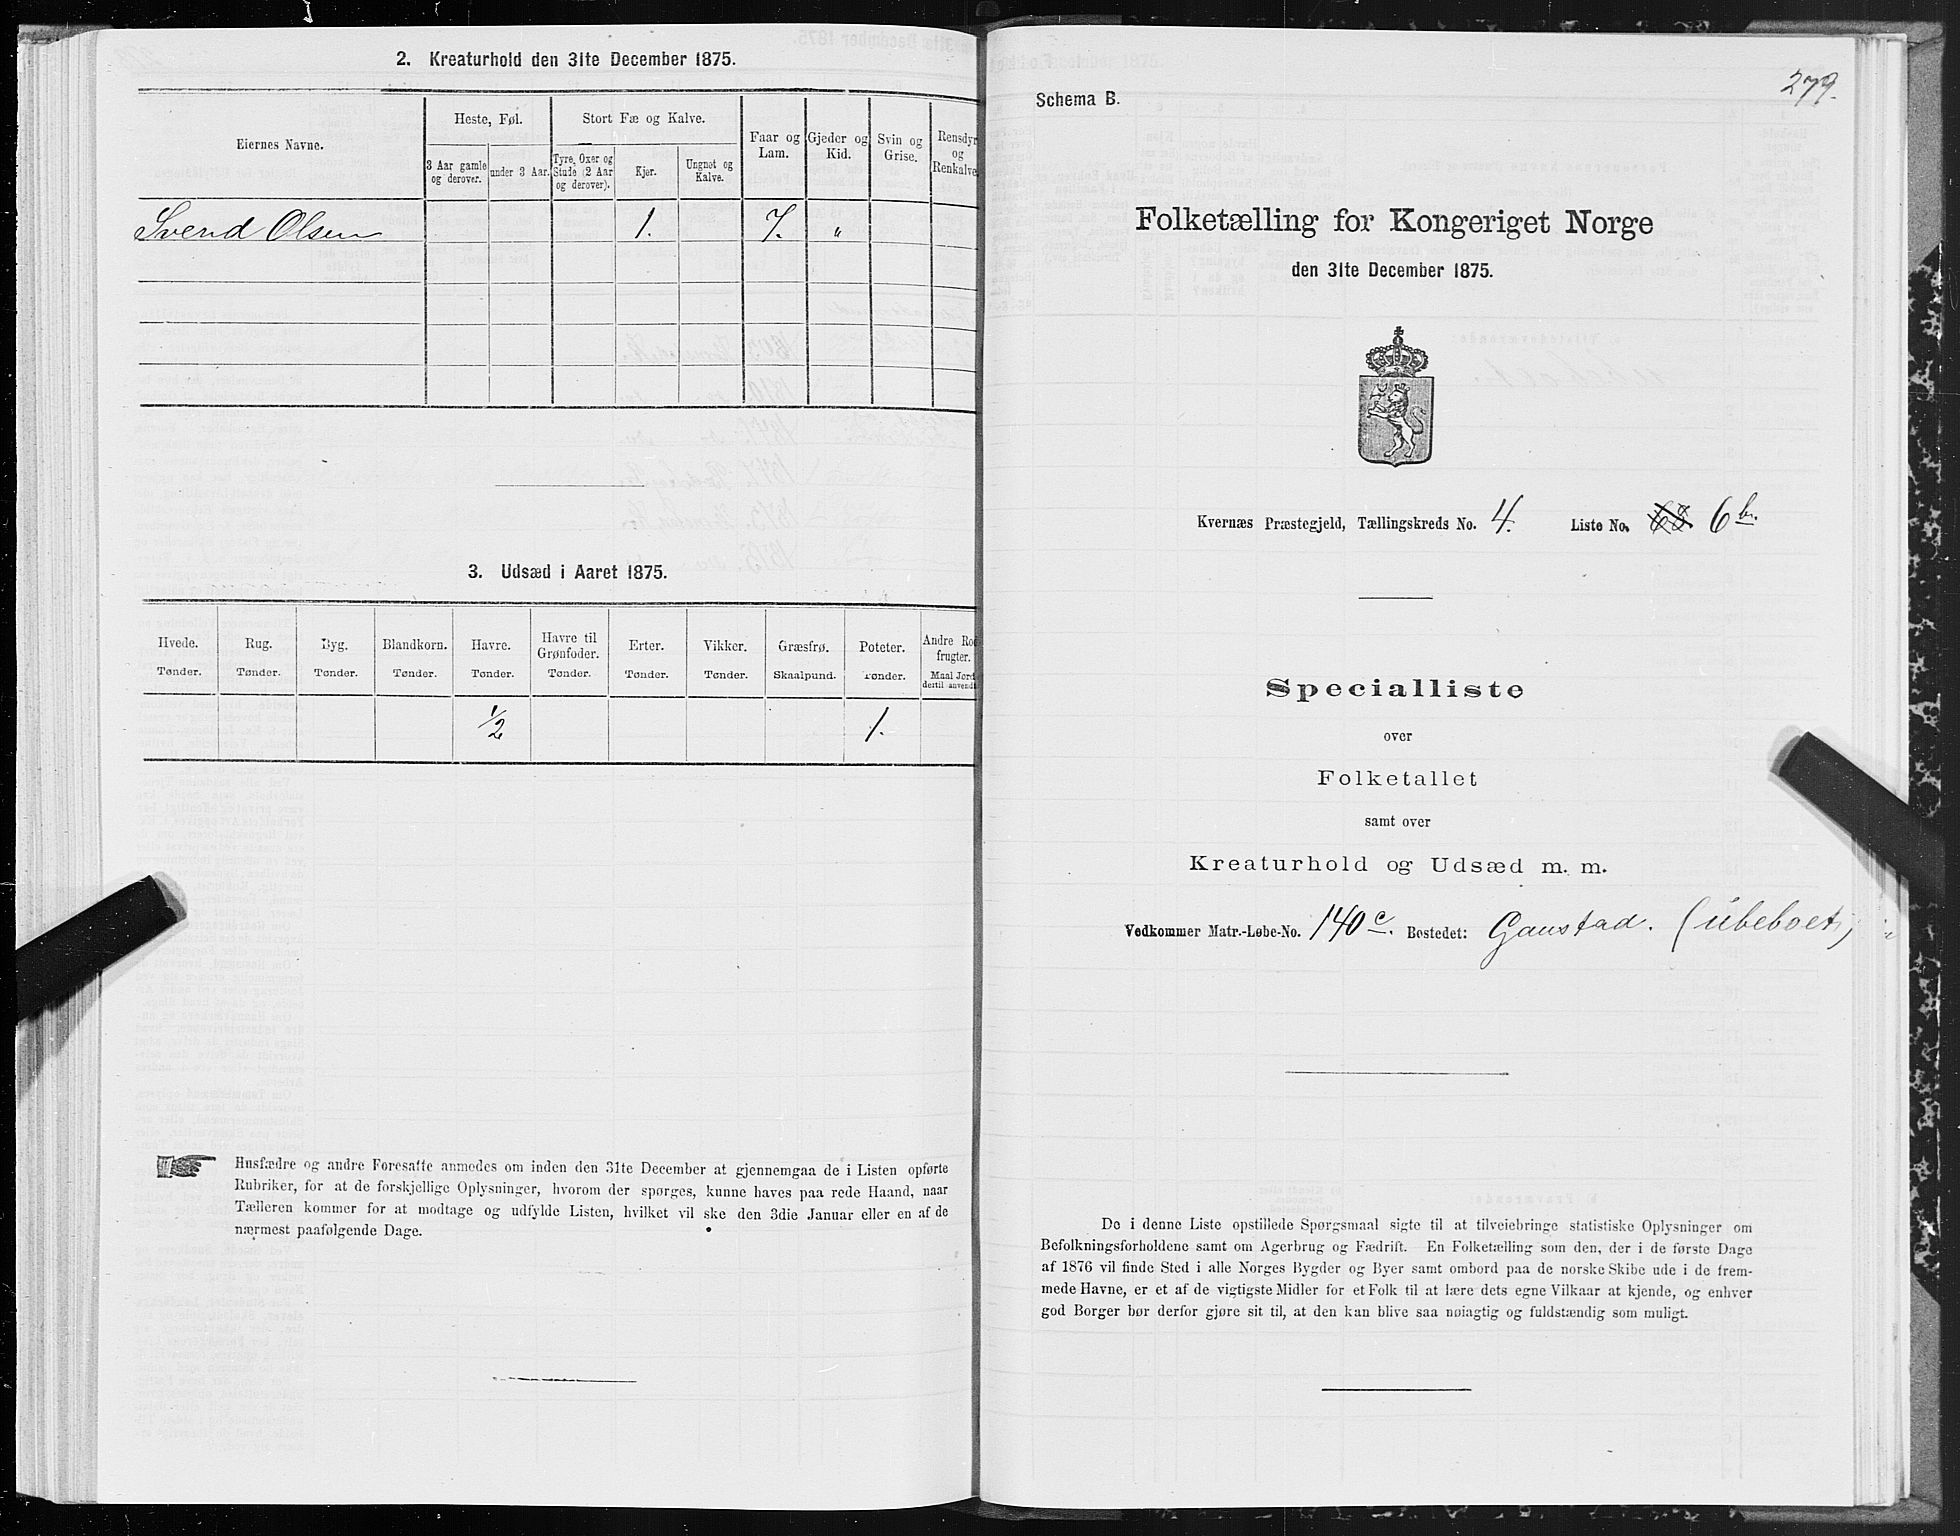 2. Kreaturhold den 31te December 1875.
Eiernes Navne.
Heste, Føl.
Stort Fæ og Kalve.
Faar og Lam.
Gjeder og Kid.
Svin og Grise.
Rensdyr og Renkalve.
3 Aar gamle og derover.
under 3 Aar.
Tyre, Oxer og Stude (2 Aar og derover).
Kjer.
Ungnøt og Kalve.
Svend Olsen 1. 7. "
3. Udsæd i Aaret 1875.
Hvede. Rug. Byg. Blandkorn. Havre. Havre til Grønfoder. Erter. Vikker. Græsfrø. Poteter. Andre Rodfrugter.
Tønder. Tønder. Tønder. Tønder. Tønder. Tønder. Tønder. Tønder. Skaalpund. Tønder. Maal Jord dertil anvendt
1/2 1.
Husfædre og andre Foresatte anmodes om inden den 31te December at gjennemgaa de i Listen opførte
Rubriker, for at de forskjellige Oplysninger, hvorom der spørges, kunne haves paa rede Haand, naar
Tælleren kommer for at modtage og udfylde Listen, hvilket vil ske den 3die Januar eller en af de
nærmest paafølgende Dage.
279.
Schema B.
Folketælling for Kongeriget Norge
den 31te December 1875.
Kvernæs Præstegjeld, Tællingskreds No. 4. Liste No. 6 b.
Specialliste
over
Folketallet
samt over
Kreaturhold og Udsæd m. m.
Vedkommer Matr.-Løbe-No. 140 c. Bostedet: Gaustad. (ubeboet)
De i denne Liste opstillede Spørgsmaal sigte til at tilveiebringe statistiske Oplysninger om
Befolkningsforholdene samt om Agerbrug og Fædrift. En Folketælling som den, der i de første Dage
af 1876 vil finde Sted i alle Norges Bygder og Byer samt ombord paa de norske Skibe ude i de frem-
mede Havne, er et af de vigtigste Midler for et Folk til at lære dets egne Vilkaar at kjende, og enhver
god Borger bør derfor gjøre sit til, at den kan blive saa nøiagtig og fuldstændig som muligt.